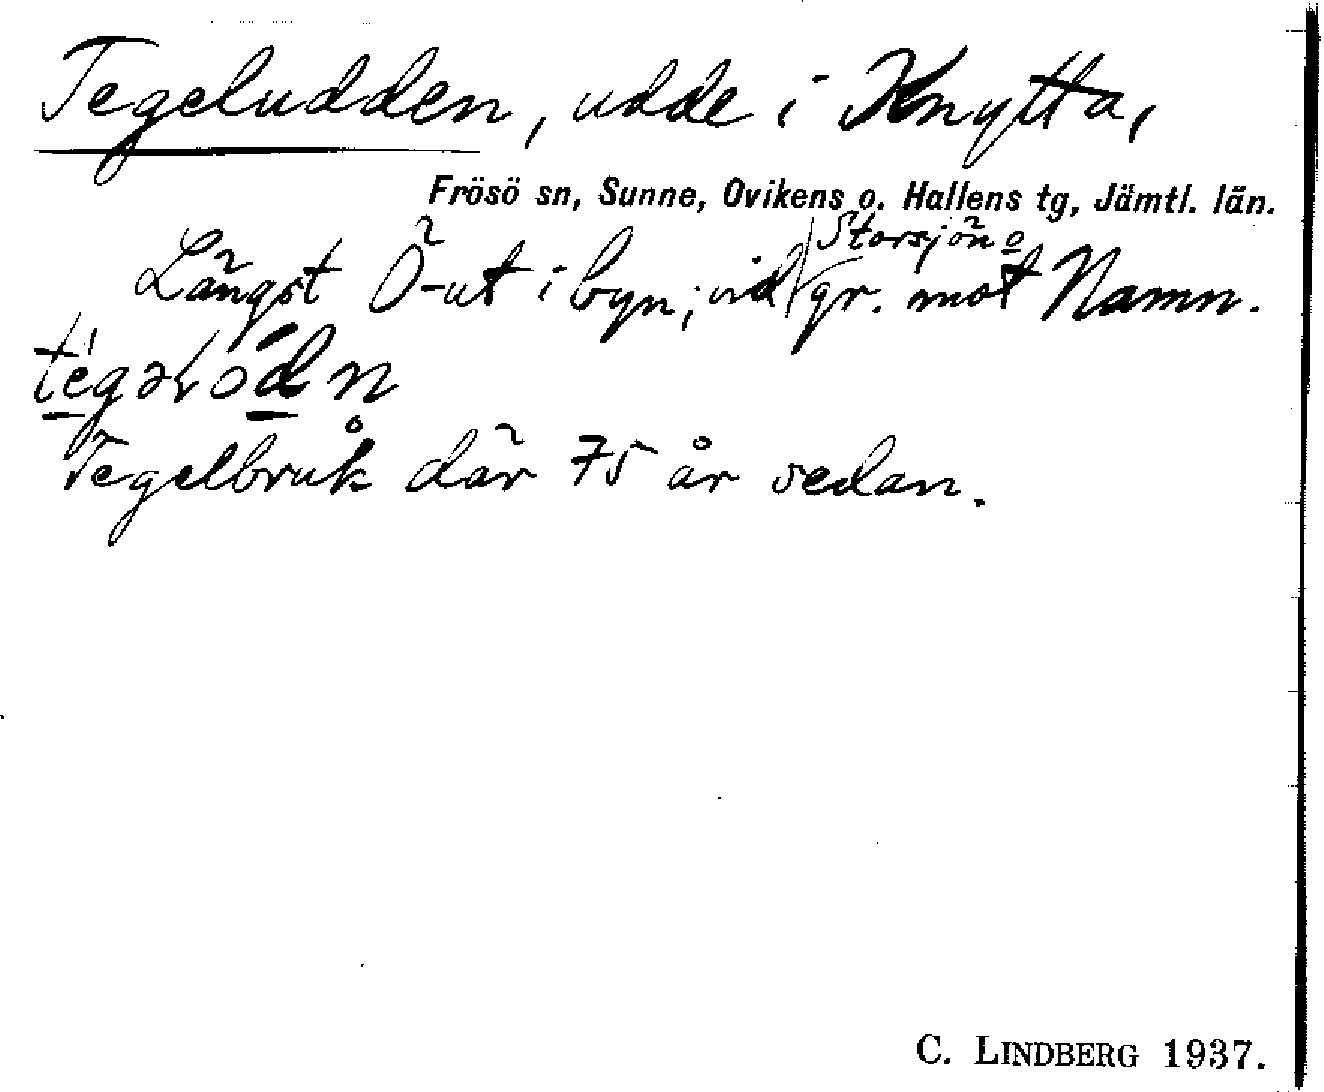 Tegeludden, udde i Knytta,
Frösö sn, Sunne, Ovikens o. Hallens tg, Jämtl. län.
Storsjön o
Längst Ö-ut i byn, vid gr. mot Namn.
Tegelbruk där 75 år sedan.
C. LINDBERG 1937.